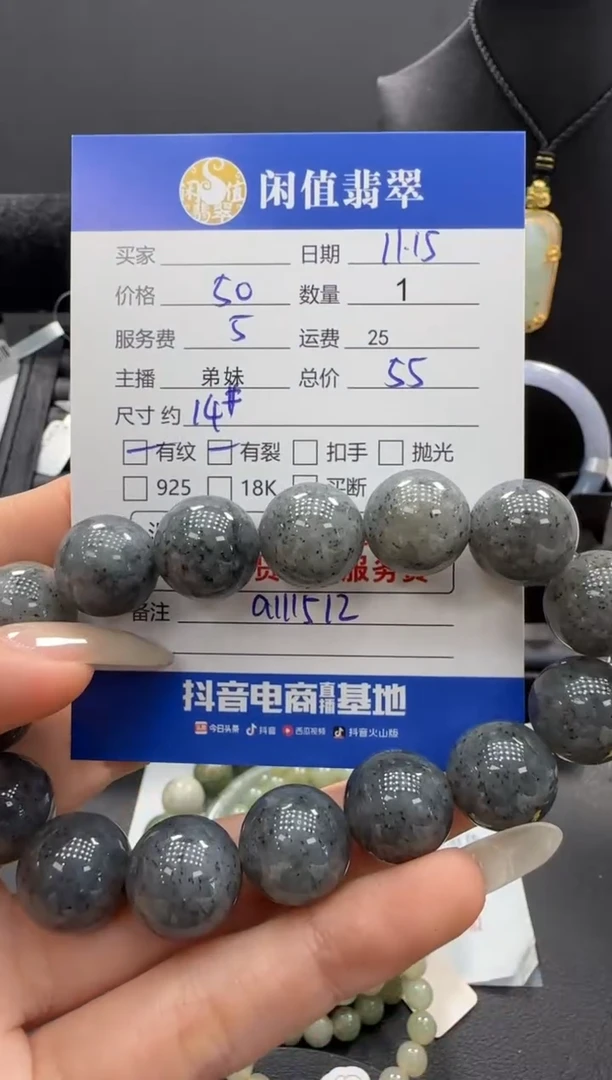 闲值翡翠
闲值翡翠
买家 日期 11.15
价格 50 数量 1
服务费 5 运费 25
主播 弟妹 总价 55
尺寸 约 14#
有纹 有裂 扣手 抛光
925 18K 买断
服务费
备注 a111512
抖音电商直播基地
今日头条 抖音 西瓜视频 抖音火山版